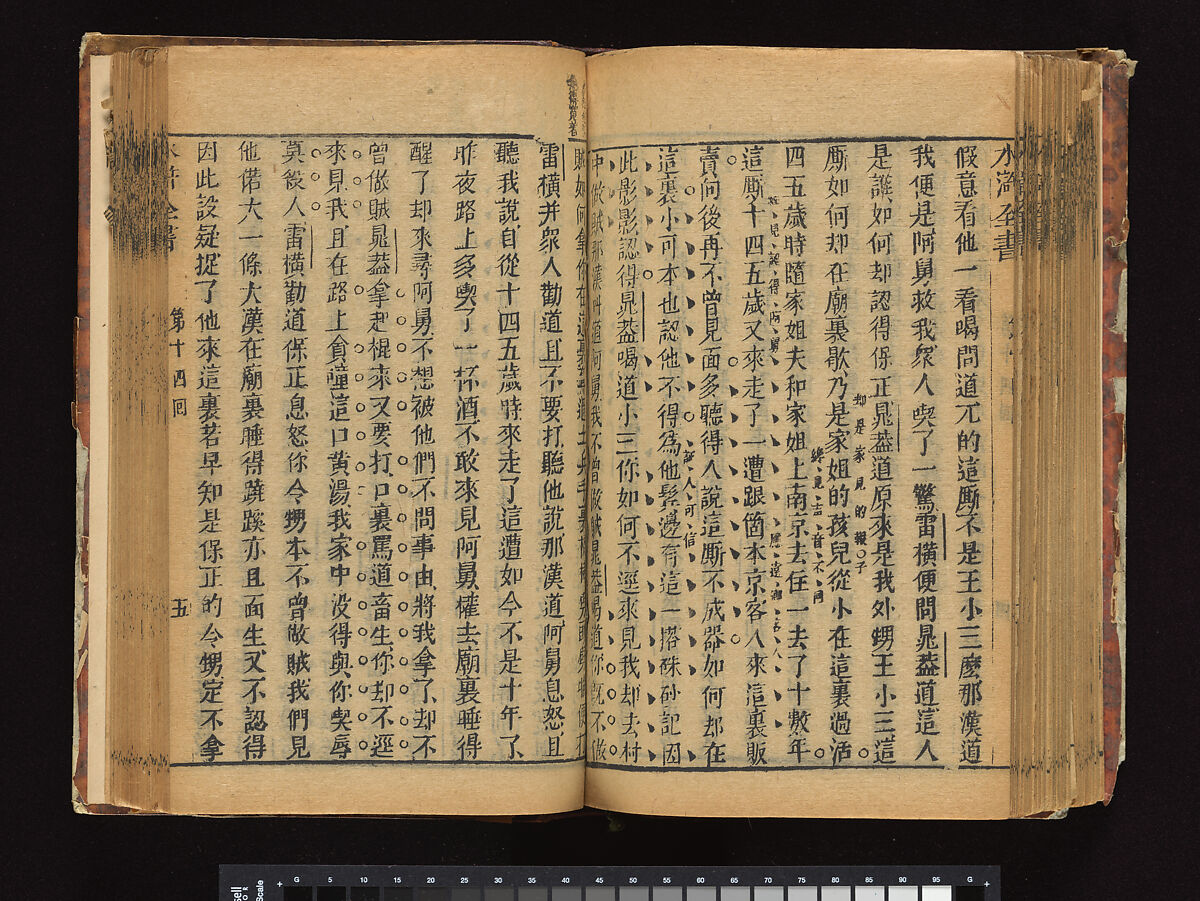 水滸全書
假意看他一看喝問道兀的這廝不是王小三麼那漢道
我便是阿舅救我衆人喫了一驚雷橫便問晁蓋道這人
是誰如何却認得保正晁蓋道原來是我外甥王小三這
廝如何却在廟裏歇乃是家姐的孩兒從小在這裏過活
四五歲時隨家姐夫和家姐上南京去住一去了十數年
這廝十四五歲又來走了一遭跟箇本京客人來這裏販
賣向後再不曾見面多聽得人說這廝不成器如何却在
這裏小可本也認他不得為他鬢邊有這一搭硃砂記因
此影影認得晁蓋喝道小三你如何不逕來見我却去村
中做賊那漢叫道阿舅我不曾做賊晁蓋喝道你既不做
賊如何拿你在這裏
雷橫并衆人勸道且不要打聽他說那漢道阿舅息怒且
聽我說自從十四五歲時來走了這遭如今不是十年了
昨夜路上多喫了一杯酒不敢來見阿舅權去廟裏睡得
醒了却來尋阿舅不想被他們不問事由將我拿了却不
曾做賊晁蓋拿起棍來又要打口裏罵道畜生你却不逕
來見我且在路上貪噇這口黃湯我家中没得與你喫辱
莫殺人雷橫勸道保正息怒你令甥本不曾做賊我們見
他偌大一條大漢在廟裏睡得蹺蹊亦且面生又不認得
因此設疑捉了他來這裏若早知是保正的令甥定不拿
水滸全書
第十四回
五